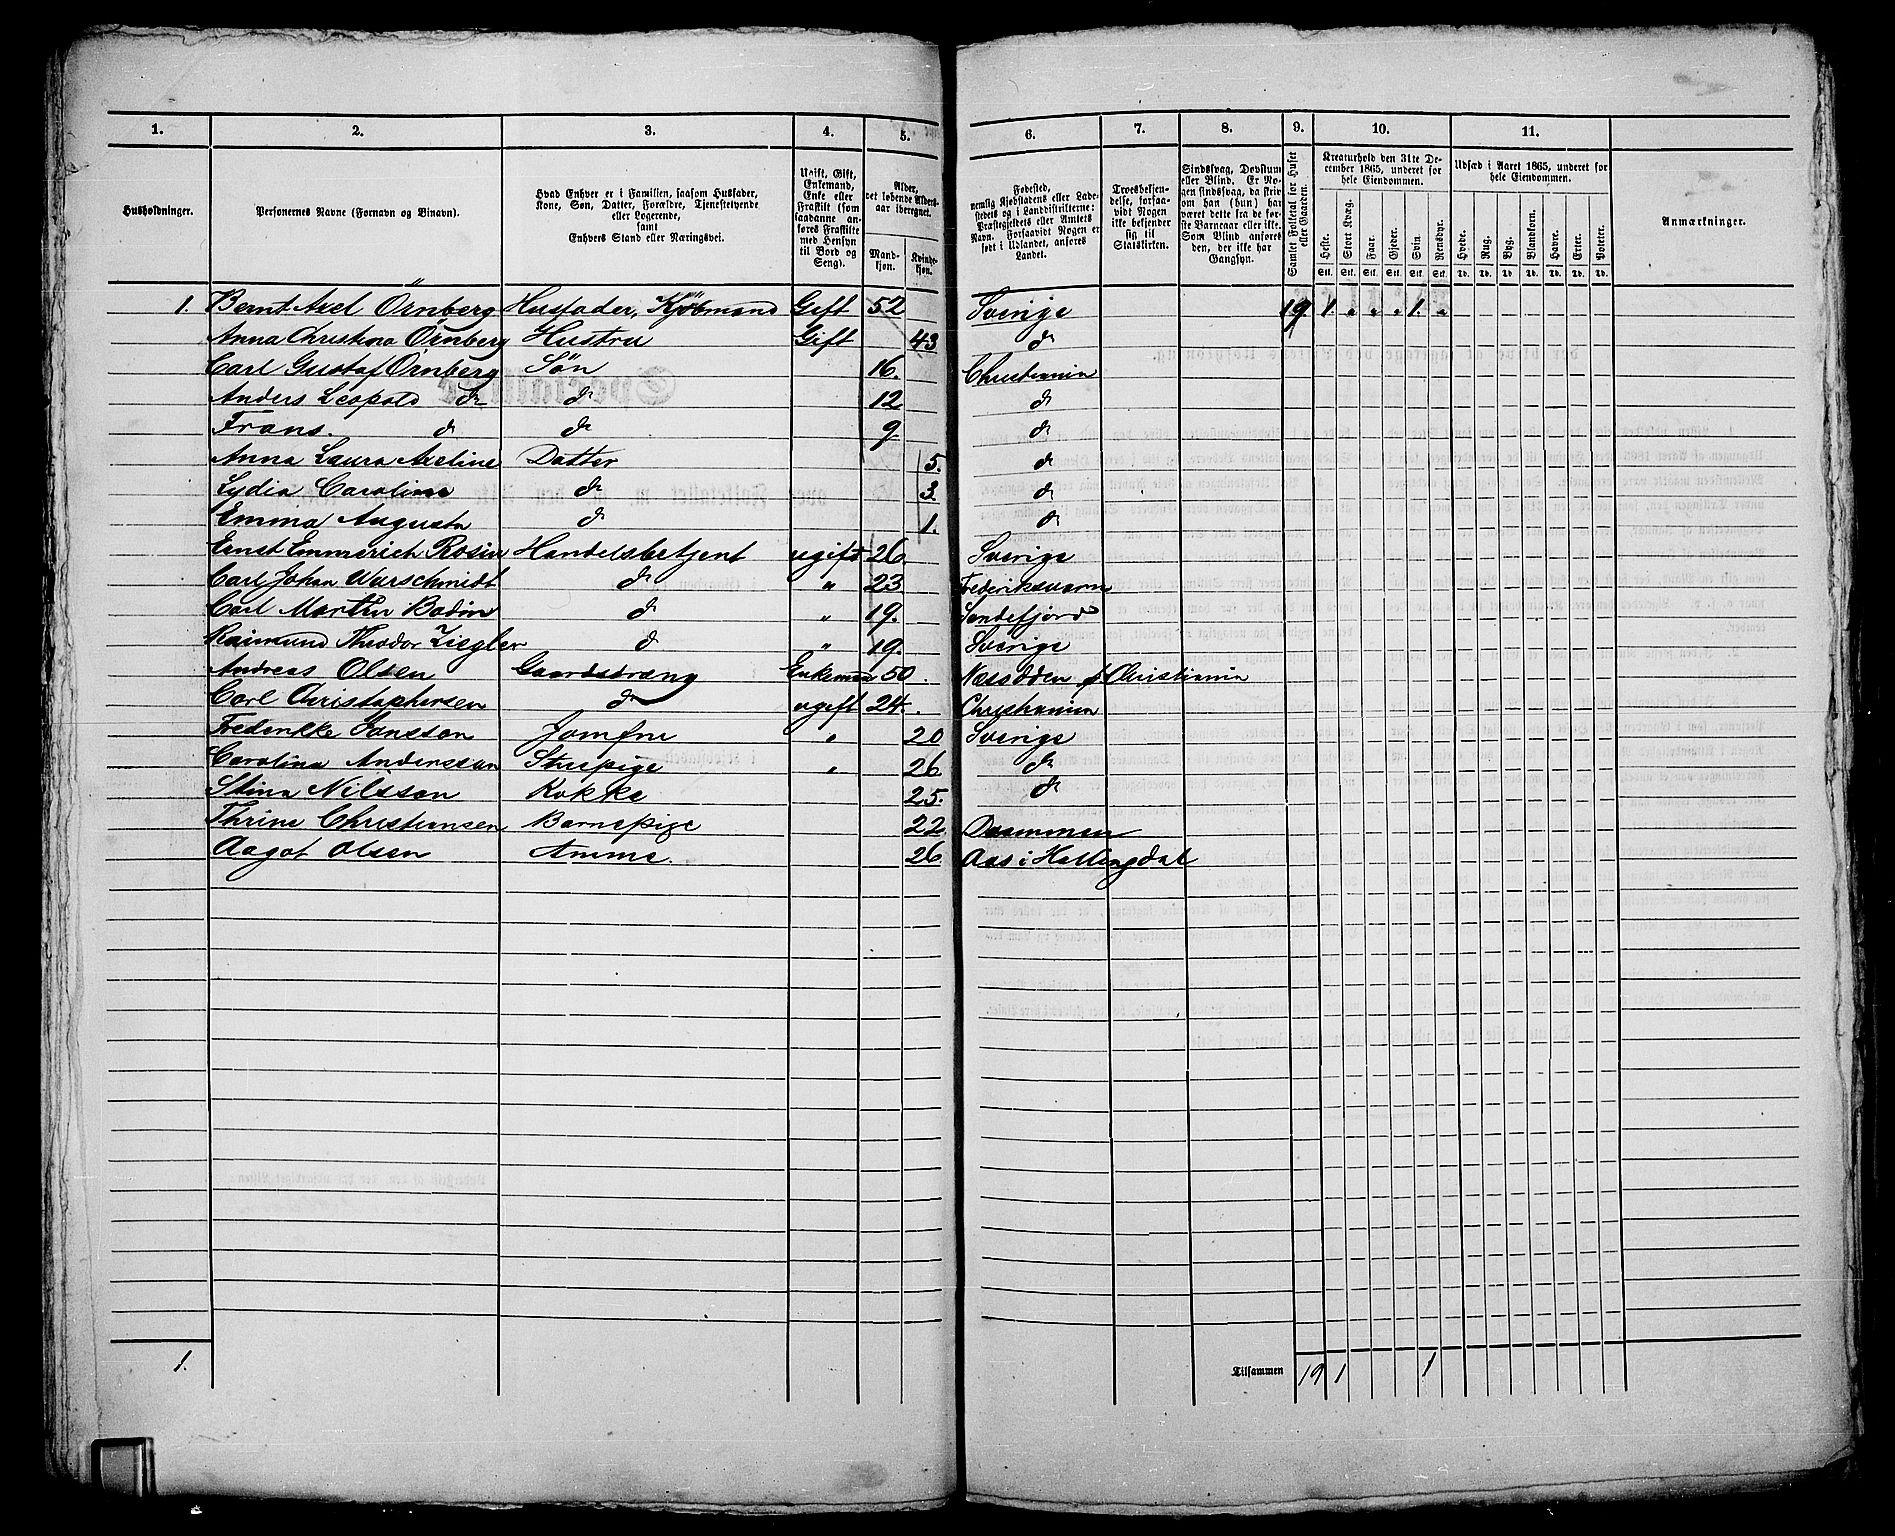 1. 2. 3. 4. 5. 6. 7. 8. 9. 10. 11.
Husholdninger. Personernes Navne (Fornavn og Binavn). Hvad Enhver er i Familien, saasom Husfader, Kone, Søn, Datter, Forældre, Tjenestetyende eller Logerende, samt Enhvers Stand eller Næringsvei. Ugift, Gift, Enkemand, Enke eller Fraskilt (som saadanne anføres Fraskilte med Hensyn til Bord og Seng). Alder, det løbende Aldersaar iberegnet. Mandkjøn. Kvindekjøn. Fødested, nemlig Kjøbstadens eller Ladestedets og i Landdistrikterne: Præstegjeldets eller Amtets Navn. Forsaavidt Nogen er født i Udlandet, anføres Landet. Troesbekjendelse, forsaavidt Nogen ikke bekjender sig til Statskirken. Sindssvag, Døvstum eller Blind. Er Nogen sindssvag, da skrives om han (hun) har været dette fra de første Barneaar eller ikke. Som Blind anføres den, der ikke har Gangsyn. Samlet Folketal for Huset eller Gaarden. Kreaturhold den 31te December 1865, underet for hele Eiendommen. Udsæd i Aaret 1865, underet for hele Eiendommen. Anmærkninger.
Heste. Stort Kvæg. Faar. Gjeder. Svin. Rensdyr. Hvede. Rug. Byg. Blandkorn. Havre. Erter. Poteter.
Stk. Stk. Stk. Stk. Stk. Stk. Td. Td. Td. Td. Td. Td. Td.
1. Bernt Axel Örnberg Husfader, Kjöbmand Gift 52 Sverige 19 1. „ „ „ 1. „
Anna Christina Örnberg Hustru Gift 43 do
Carl Gustaf Örnberg Søn 16. Christiania
Anders Leopold do do 12 do
Frans. do do 9 do
Anna Laura Axeline Datter 5. do
Lydia Caroline do 3. do
Emma Augusta do 1. do
Ernst Emmerich Rosin Handelsbetjent ugift 26. Sverige
Carl Johan Warschmidt do „ 23 Frederiksværn
Carl Martin Bodin do „ 19. Sandefjord
Raimund Theodor Ziegler do „ 19. Sverige
Andreas Olsen Gaardsdræng Enkeman 50. Næsodden p Christiania
Carl Christophersen do ugift 24. Christiania
Frederikke Jansson Jomfru „ 20 Sverige
Carolina Andersson Stuepige „ 26 do
Stina Nilsson Kokke 25. do
Thrine Christiansen Barnepige 22 Drammen
Aagot Olsen Amme. 26 Aas i Hallingdal
1. Tilsammen 19 1 1